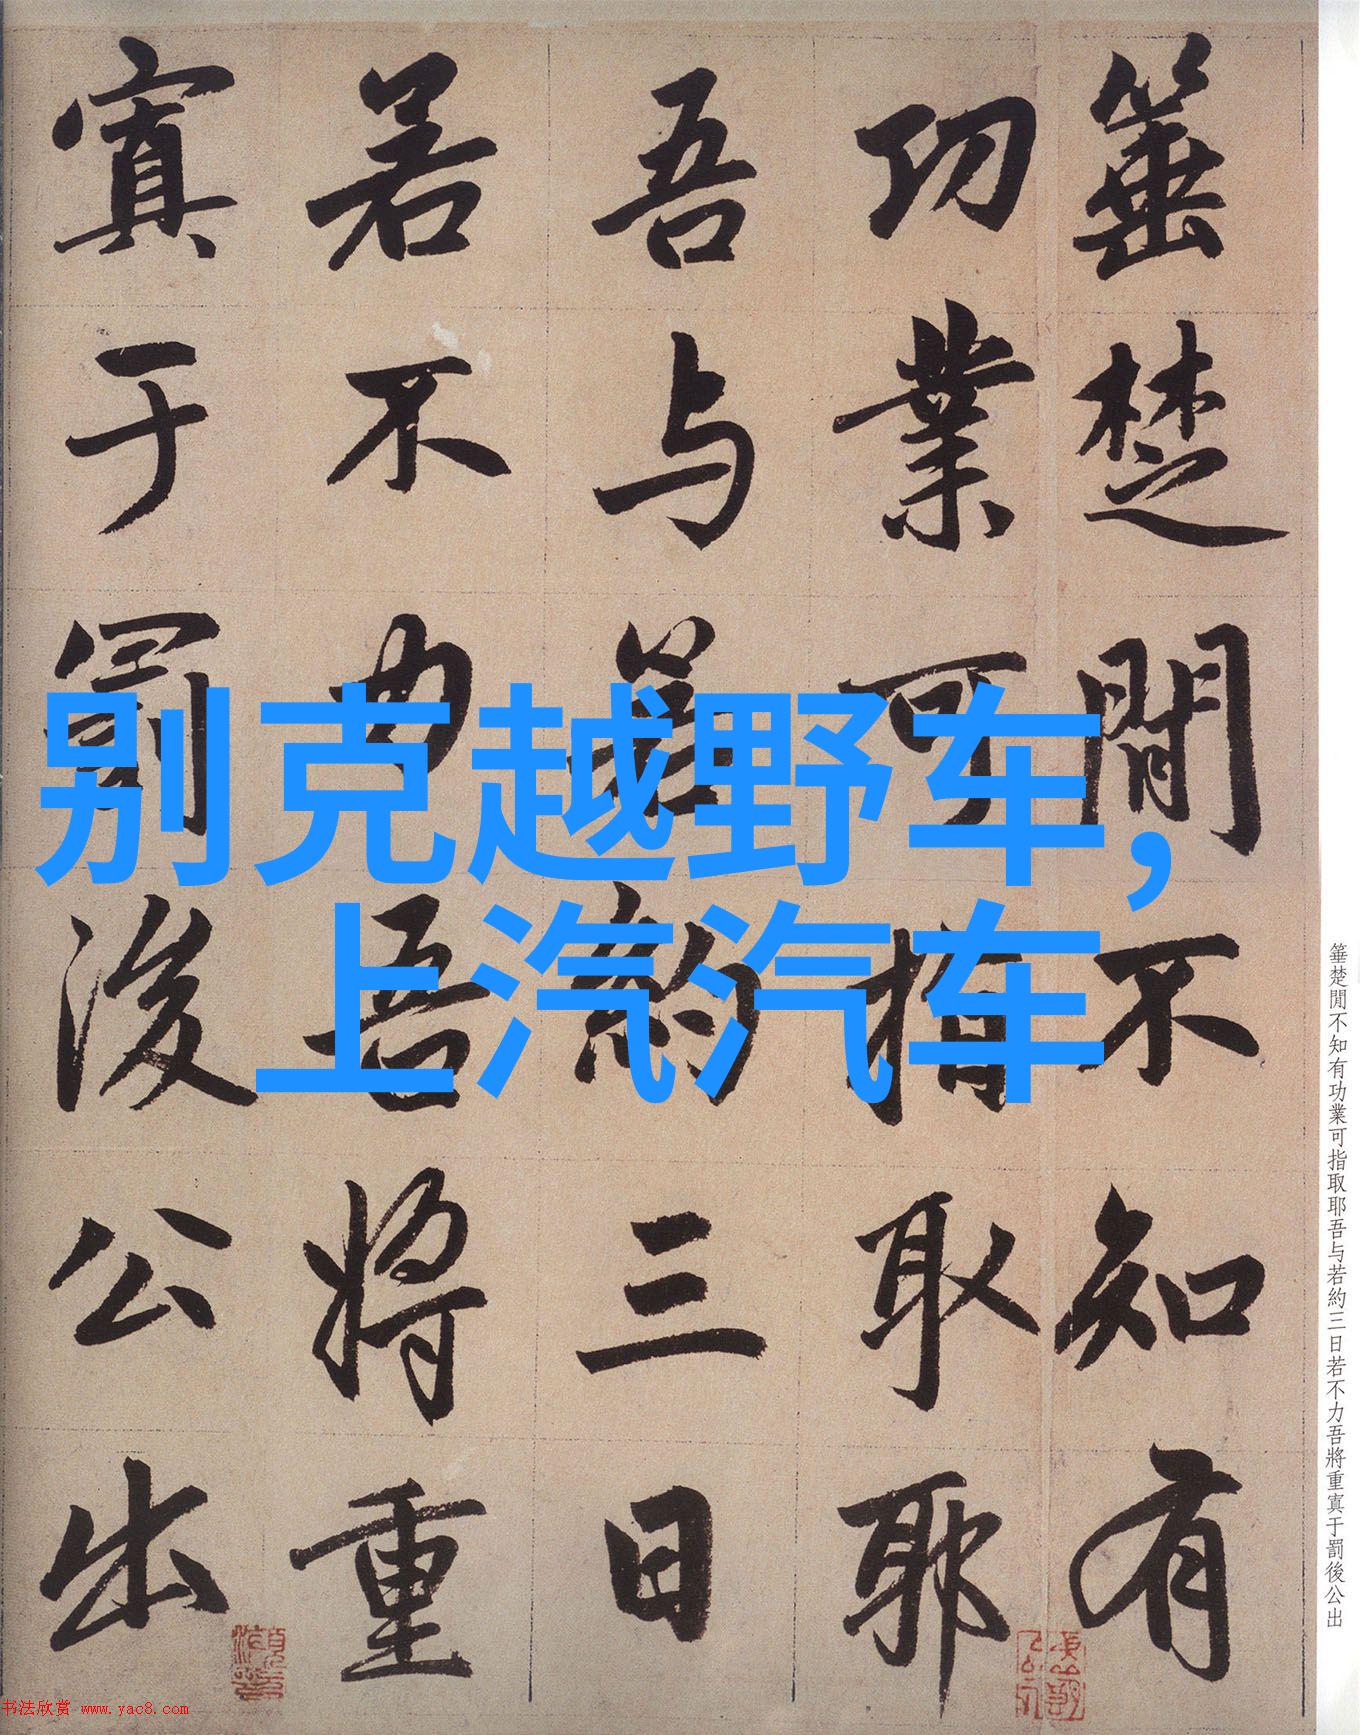 别克越野车,
上汽汽车
箠楚閒不知有
功業可指取耶
吾与若約三日
若不力吾將重
寘于罰後公出
箠楚閒不知有功業可指取耶吾与若約三日若不力吾將重寘于罰後公出
书法欣赏 www.yac8.com